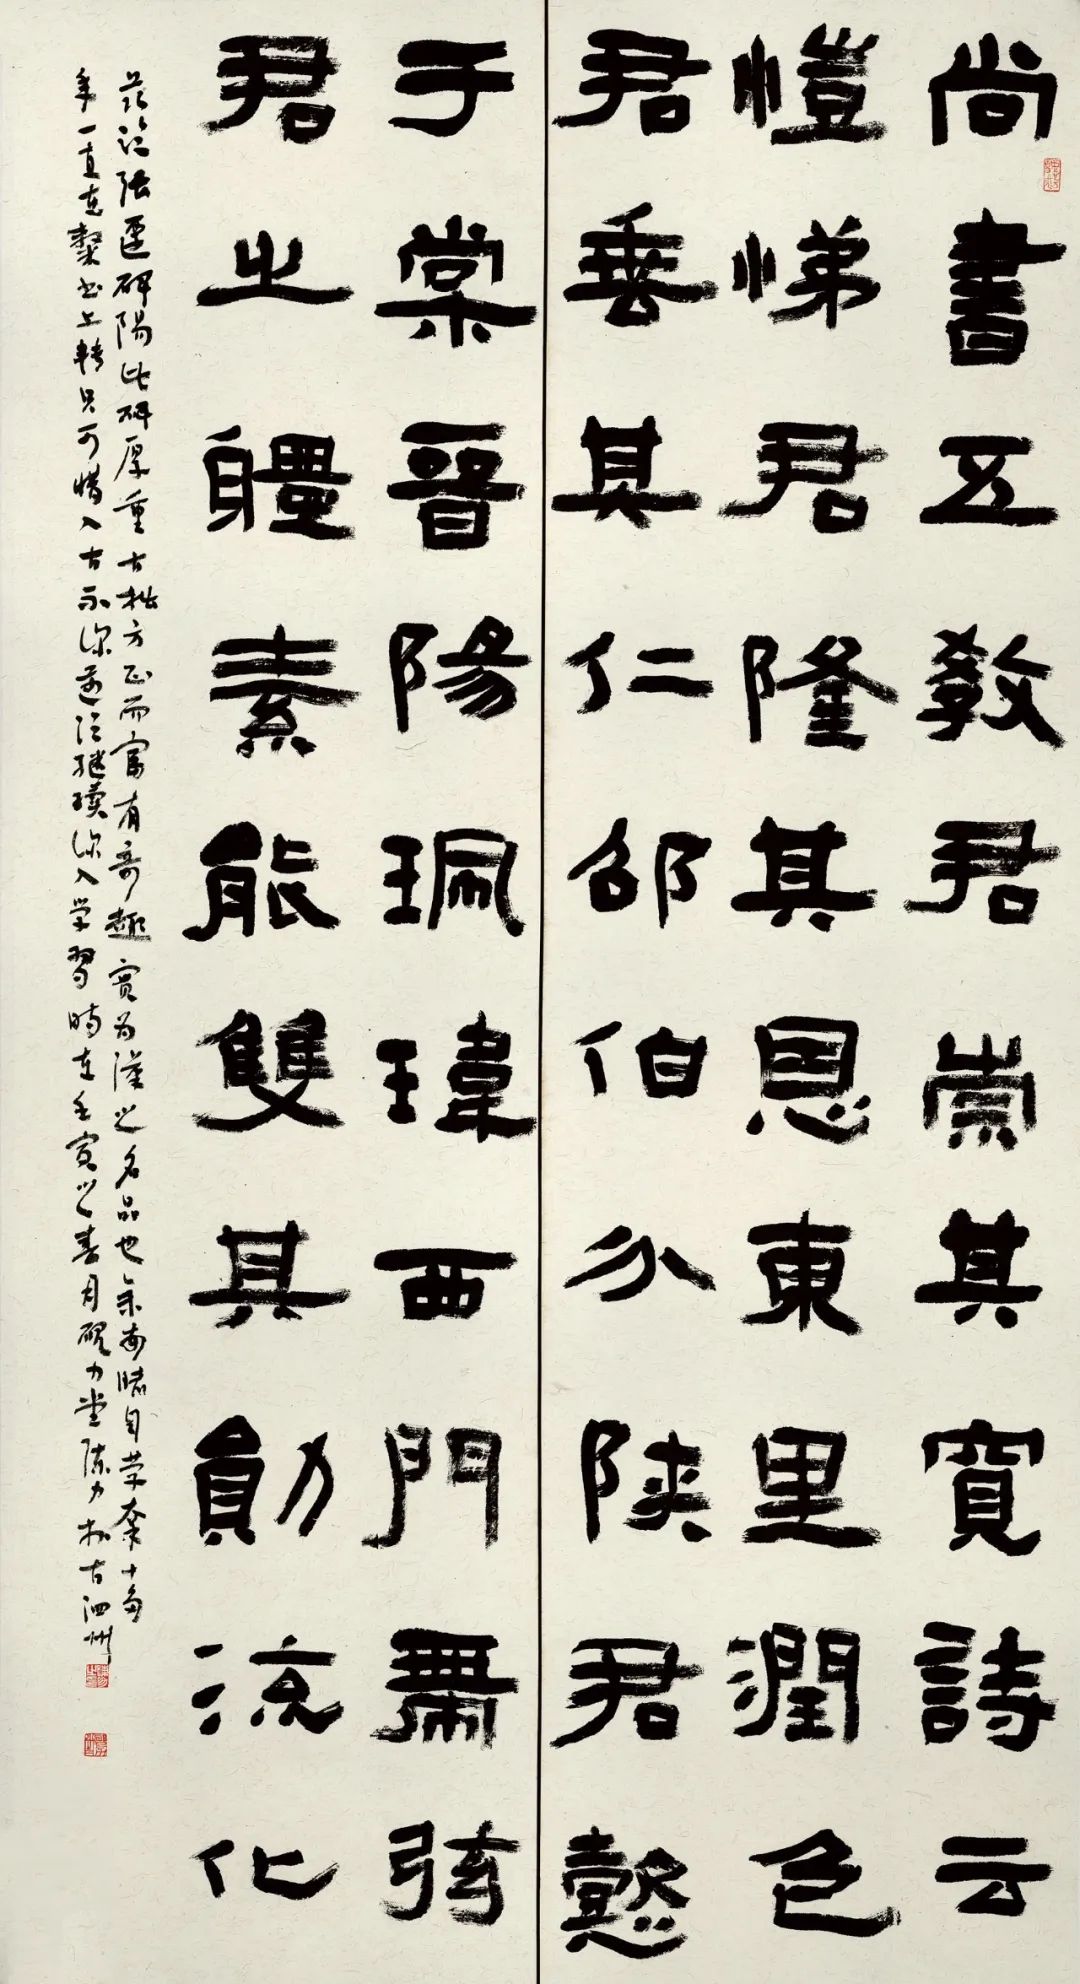 尚書五教君崇其寬詩云
愷悌君隆其恩東里潤色
君垂其仁邵伯分陝君懿
于棠晉陽珮瑋西門帶弦
君之軆素能雙其勛流化
茲臨張遷碑陽此碑厚重古拙方正而富有奇趣實為漢之名品也余 十多
年一直在隸書上轉只可惜入古不深 臨繼續深入学習時在壬寅之春月硯力堂陳力於古泗州